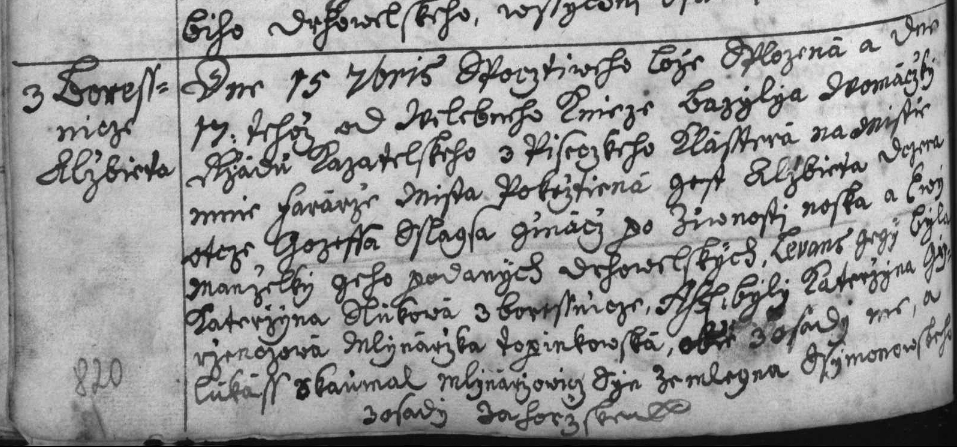 biho Drhowelskeho,
3 Boress=
nicze
Alzbieta
Dne 15 7bris Spocztiweho loze Splozena a dne
17. tehoz od Welebneho Knieze Bazylya Domaczky
Rzadu Kazatelskeho z Piseczkeho Klasstera na Mistie
mne Fararze Mista Pokrztiena gest Alzbieta Dczera
otcze Gozeffa Sslagsa ginacz po Ziwnosti noska a
Manzelky geho podanych Drhowelskych, Levans gegy byla
Katerzyna Rukowa z boressnicze, byly Katerzyna
Mlynarzka topinkowska, z osady me, a
Lukass Skaumal Mlynarzowicz Syn ze mlegna Ssymonowskeho
z osady Zahorzske
820